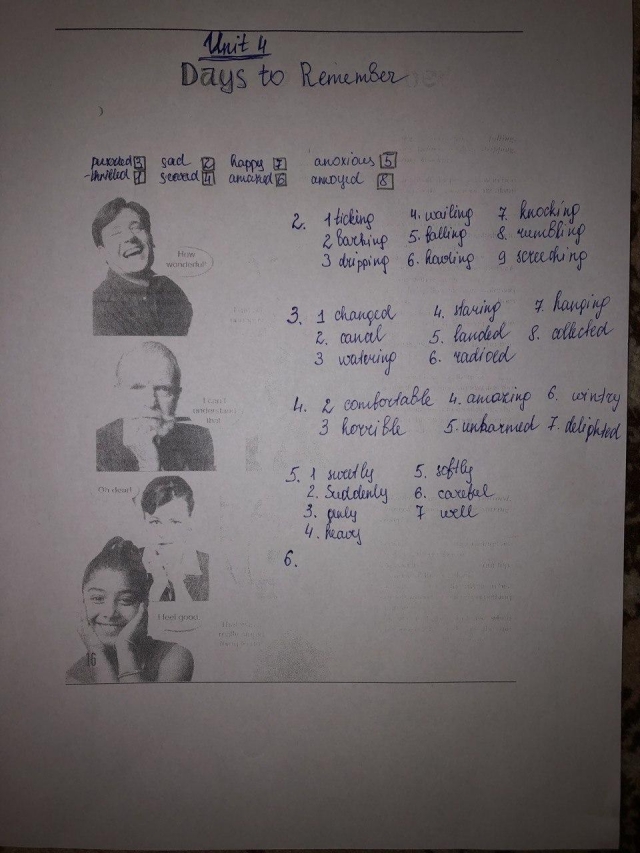 Unit 4
Days to Remember
puzzled 3 sad 2 happy 7 anoxious 5
thrilled 1 scared 4 amazed 6 annoyed 8
How
wonderful!
I can't
understand
that
Oh dear!
I feel good
16
2. 1 ticking 4. wailing 7. knocking
2 barking 5. falling 8. rumbling
3 dripping 6. howling 9 screeching
3. 1 changed 4. staring 7. hanging
2. canal 5. landed 8. collected
3 watering 6. radioed
4. 2 comfortable 4. amazing 6. wintry
3 horrible 5. unharmed 7. delighted
5. 1 sweetly 5. softly
2. Suddenly 6. careful
3. 7 well
4. heavy
6.